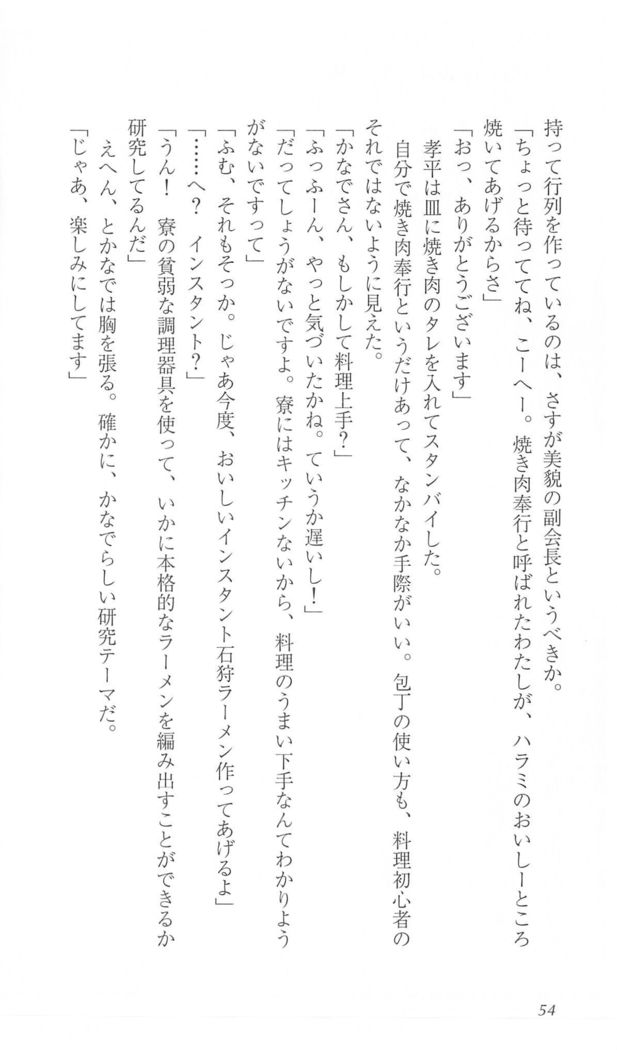 持って行列を作っているのは、さすが美貌の副会長というべきか。
「ちょっと待っててね、こーへー。焼き肉奉行と呼ばれたわたしが、ハラミのおいしーところ
焼いてあげるからさ」
「おっ、ありがとうございます」
孝平は皿に焼き肉のタレを入れてスタンバイした。
自分で焼き肉奉行というだけあって、なかなか手際がいい。包丁の使い方も、料理初心者の
それではないように見えた。
「かなでさん、もしかして料理上手？」
「ふっふーん、やっと気づいたかね。ていうか遅いし！」
「だってしょうがないですよ。寮にはキッチンないから、料理のうまい下手なんてわかりよう
がないですって」
「ふむ、それもそっか。じゃあ今度、おいしいインスタント石狩ラーメン作ってあげるよ」
「……へ？　インスタント？」
「うん！　寮の貧弱な調理器具を使って、いかに本格的なラーメンを編み出すことができるか
研究してるんだ」
えへん、とかなでは胸を張る。確かに、かなでらしい研究テーマだ。
「じゃあ、楽しみにしてます」
54